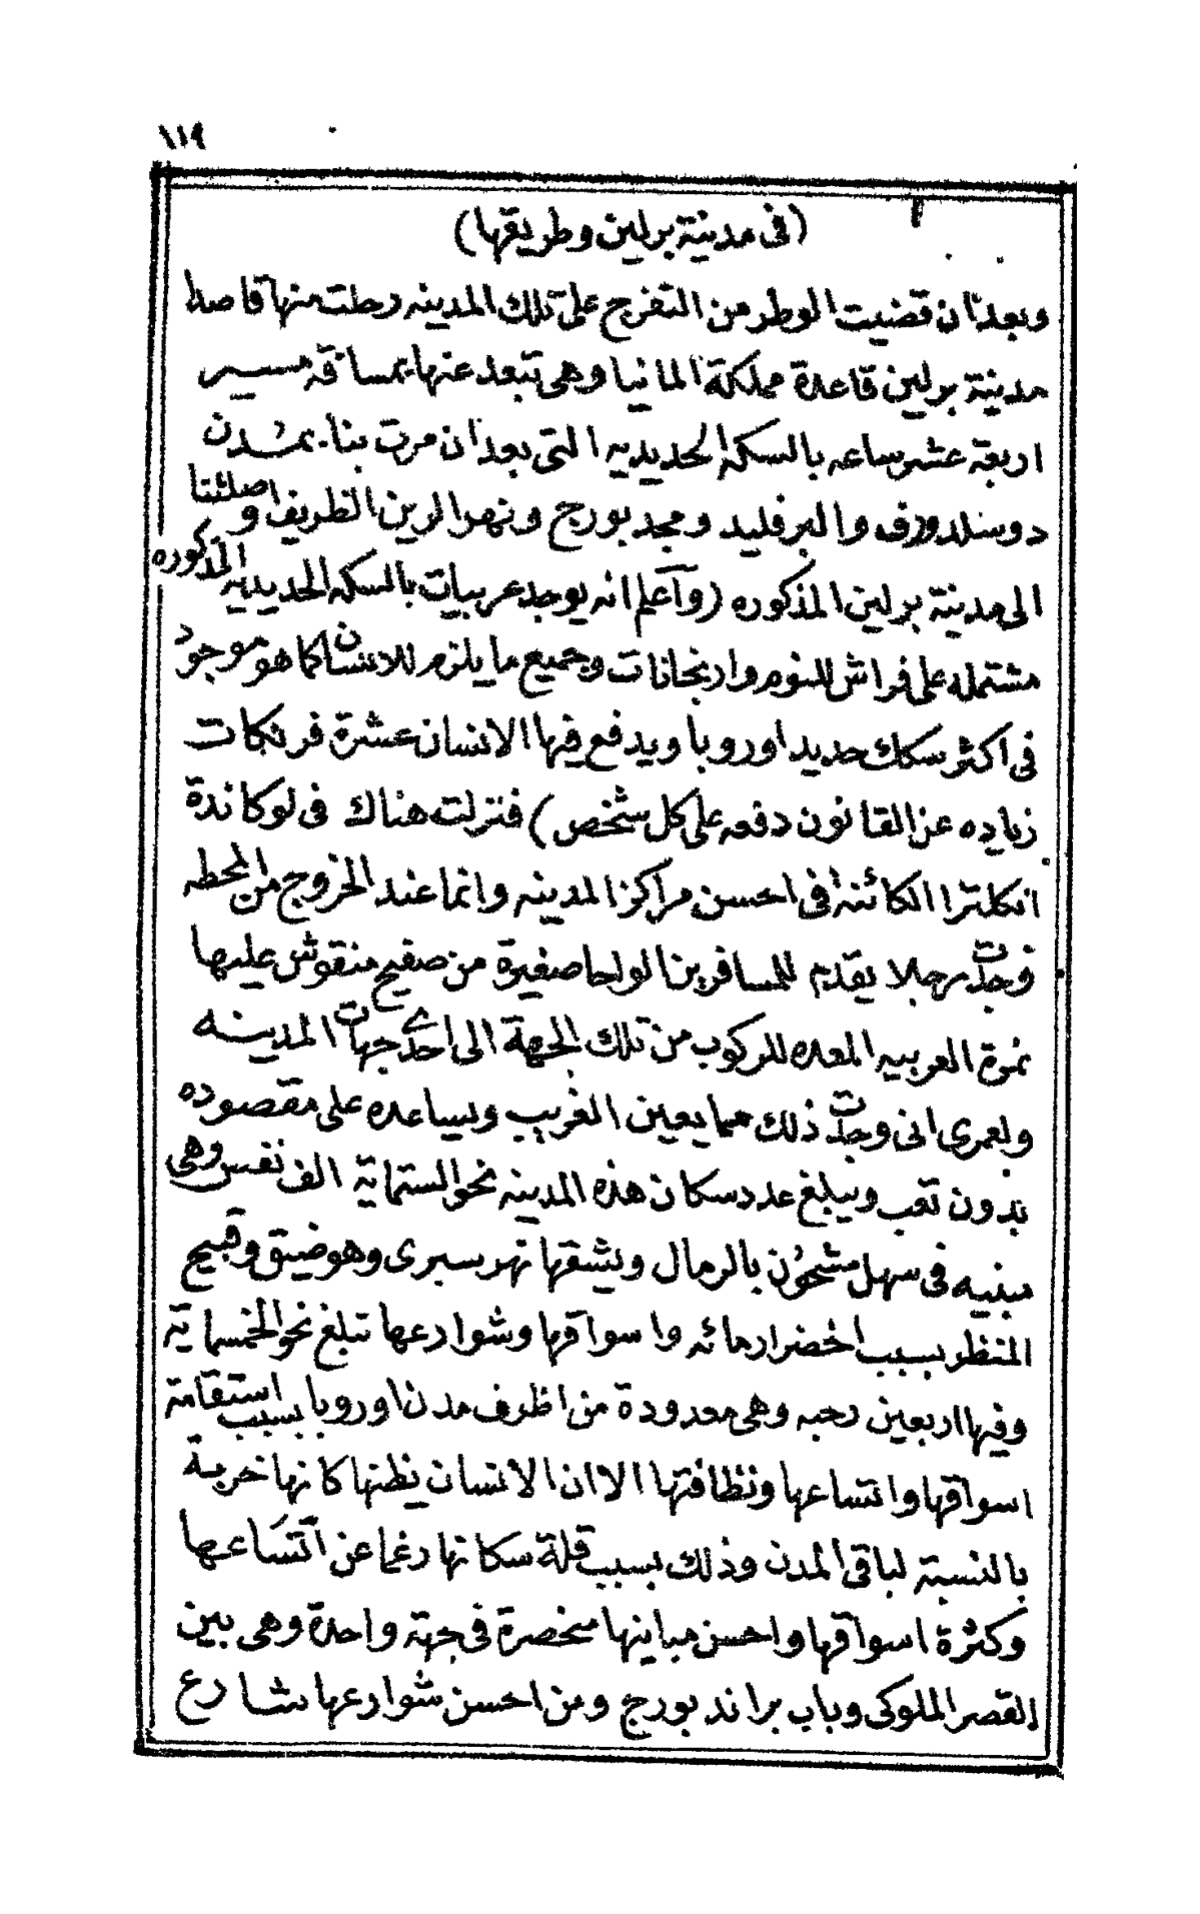 ١١٩
(فى مدينة برلين وطريقها)
وبعد ان قضيت الوطر من التفرج على تلك المدينه رحلت منها قاصدا
مدينة برلين قاعدة مملكة المانيا وهى تبعد عنها بمسافة مسير
اربعة عشر ساعه بالسكه الحديديه التى بعد ان مرت بنا بمدن
دوسلدورف والبرفليد ومجد بورج ونهر الرين الظريف واصلتنا
الى مدينة برلين المذكوره (واعلم انه يوجد عربيات بالسكه الحديديه المذكوره
مشتمله على فراش للنوم واربخانات وجميع ما يلزم للانسان كما هو موجود
فى اكثر سكك حديد اوروبا ويدفع فيها الانسان عشرة فرنكات
زياده عن القانون دفعه على كل شخص) فنزلت هناك فى لوكاندة
انكلترا الكائنة فى احسن مراكز المدينه وانما عند الخروج من المحطه
وجدت رجلا يقدم للمسافرين الواحا صغيرة من صفيح منقوش عليها
نمرة العربيه المعده للركوب من تلك الجهة الى احدى جهات المدينه
ولعمرى انى وجدت ذلك مما يعين الغريب ويساعده على مقصوده
بدون تعب ويبلغ عدد سكان هذه المدينه نحو الستماية الف نفس وهى
مبنيه فى سهل مشحون بالرمال ويشقها نهر سبرى وهو ضيق وقبيح
المنظر بسبب اخضرار مائه واسواقها وشوارعها تبلغ نحو الخمسماية
وفيها اربعين رحبه وهى معدودة من اظرف مدن اوروبا بسبب استقامة
اسواقها واتساعها ونظافتها الا ان الانسان يظنها كانها خربة
بالنسبة لباقى المدن وذلك بسبب قلة سكانها رغما عن اتساعها
وكثرة اسواقها واحسن مبانيها منحصرة فى جهة واحدة وهى بين
القصر الملوكى وباب براند بورج ومن احسن شوارعها شارع